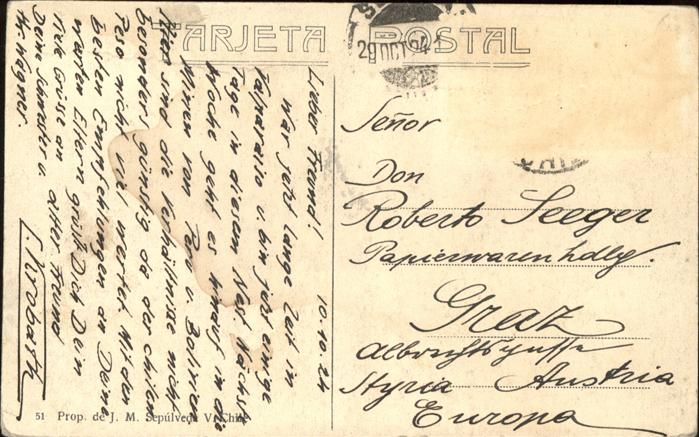 TARJETA POSTAL
29 OCT 24
CHILE
10.10.24
Lieber Freund!
War jetzt lange Zeit in
Valparaiso u. bin jetzt einige
Tage in diesem Nest. Nächste
Woche geht es hinauf in die
Minen von Peru u. Bolivien
Hier sind die Verhältnisse nicht
besonders günstig da der chilen
Peso nicht viel wertet. Mit den
besten Empfehlungen an Deine
werten Eltern grüßt Dich Dein
alter Freund
Viele Grüsse an
Deine Schwester u.
Hr. Wagner.
Señor
Don
Roberto Seeger
Papierwarenhdlg.
Graz
Albrechtsgasse
Styria Austria
Europa
51 Prop. de J. M. Sepúlveda V. Chile